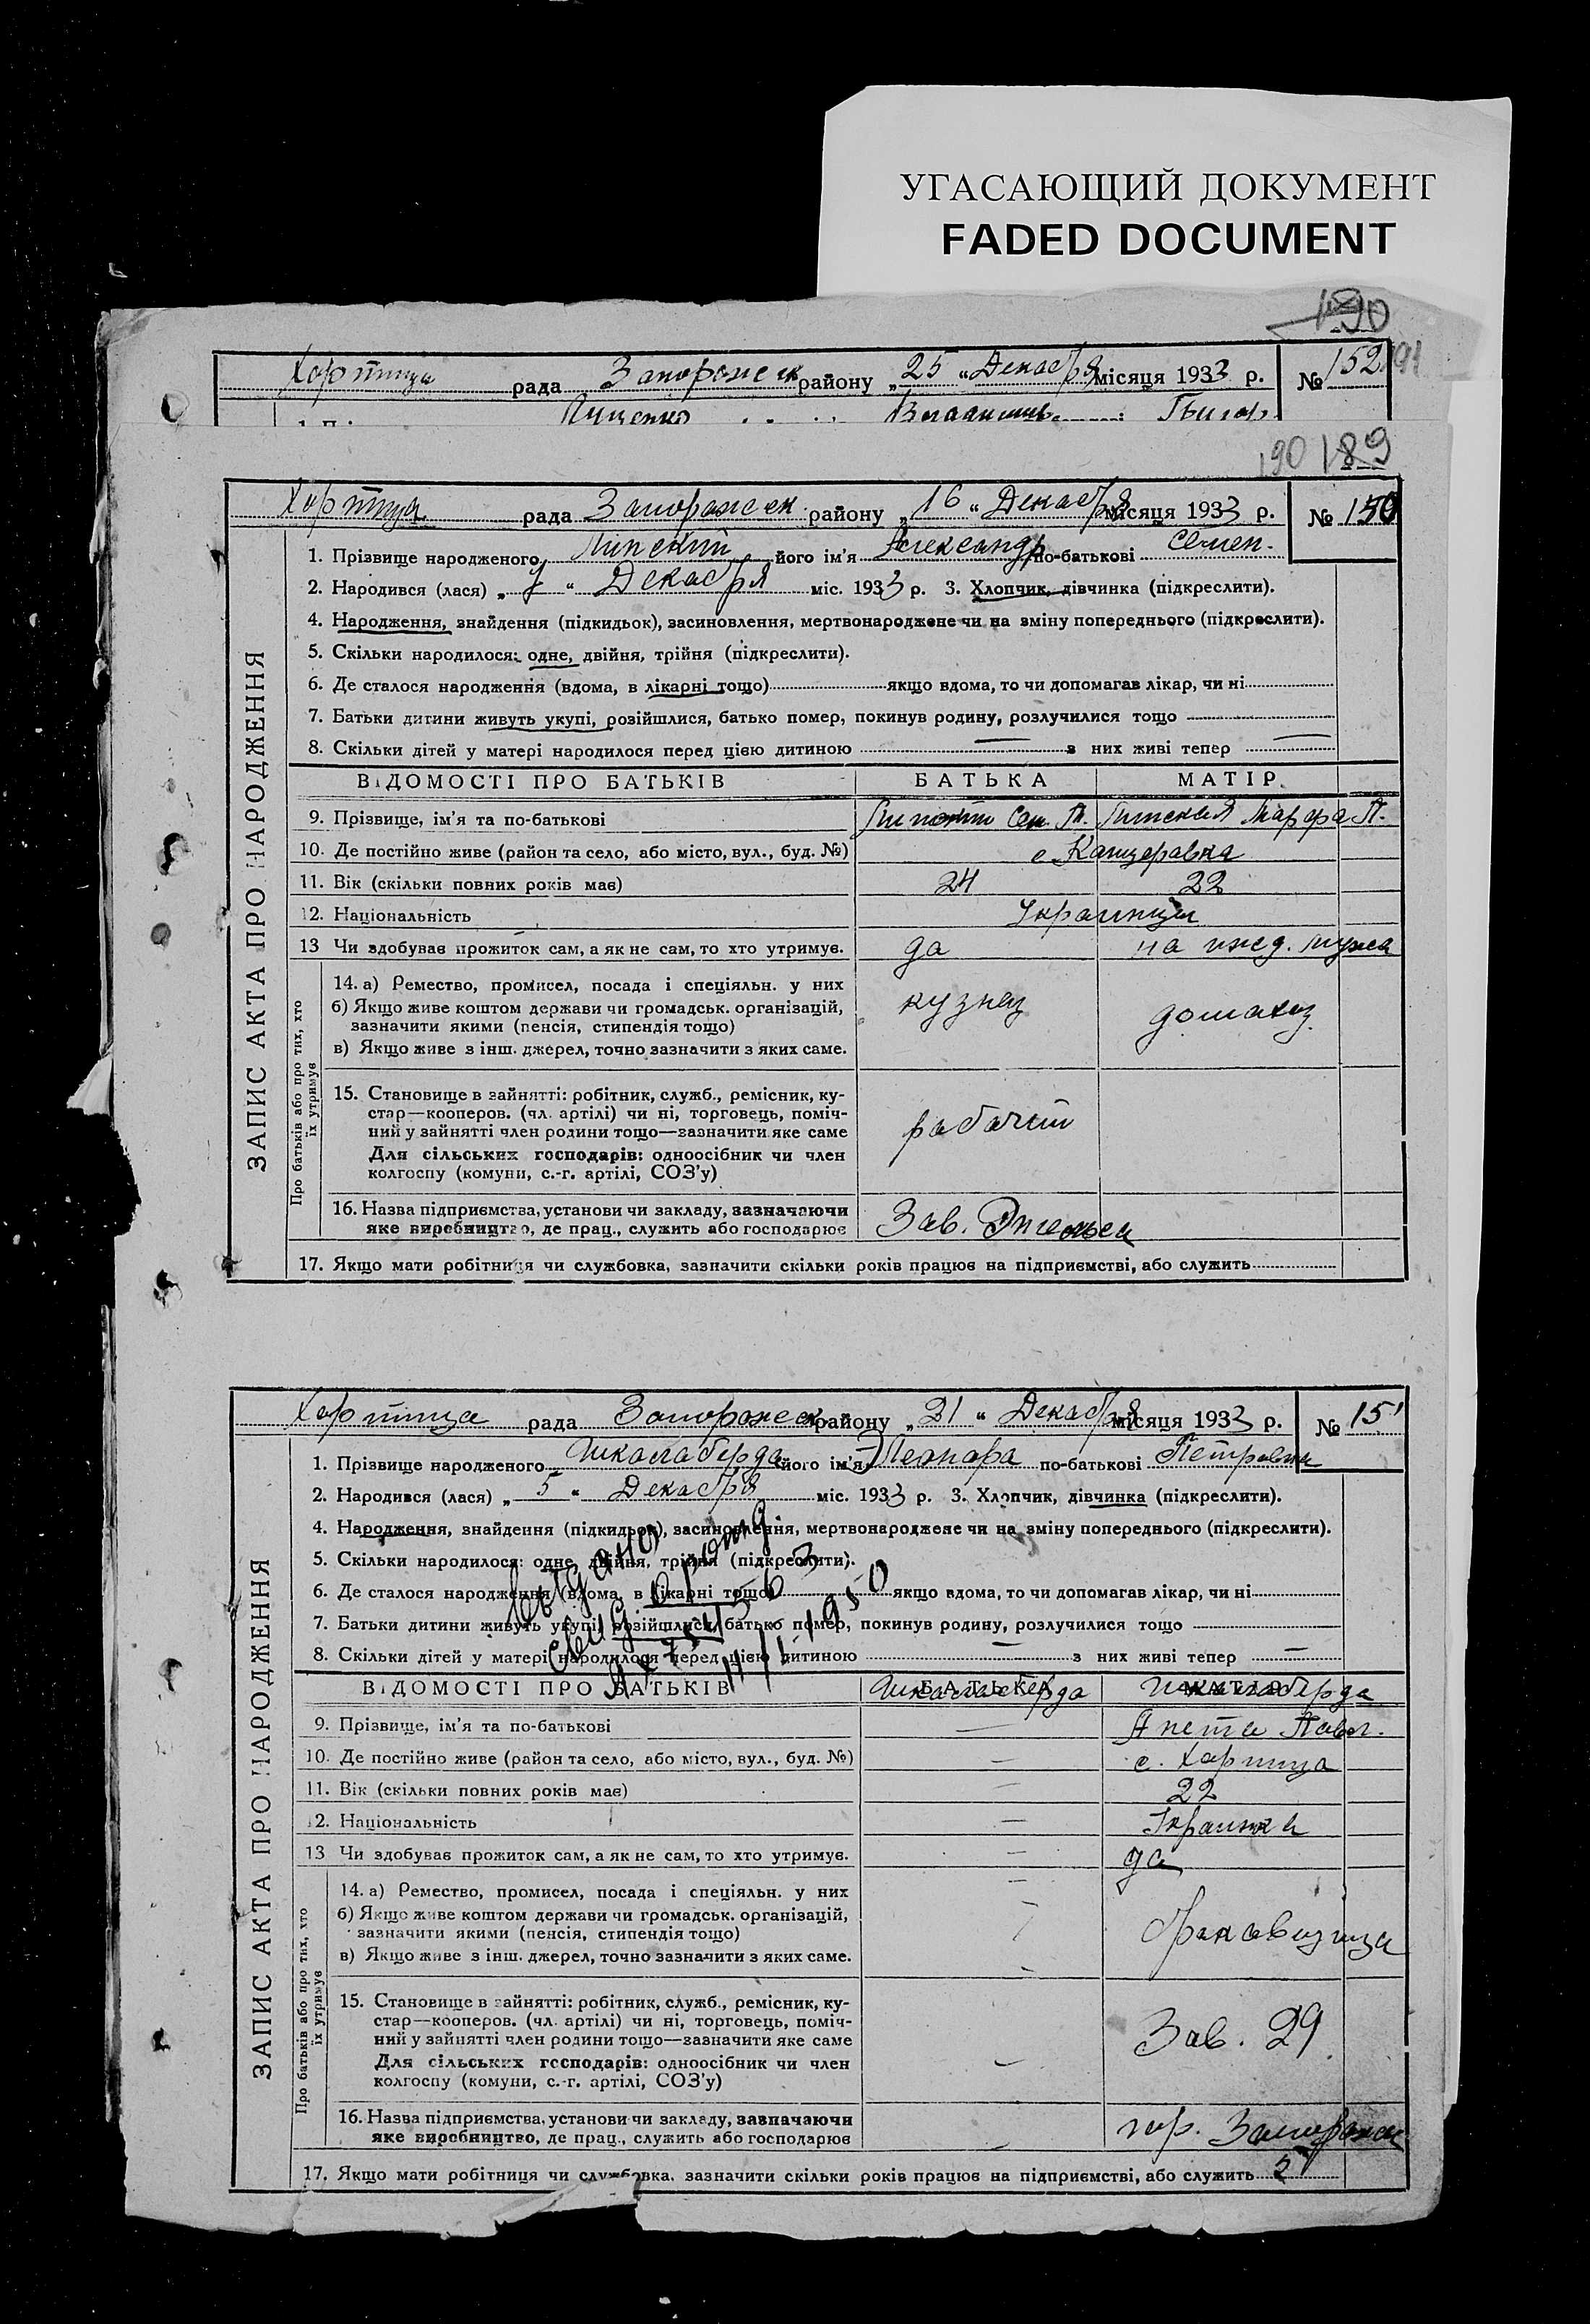 УГАСАЮЩИЙ ДОКУМЕНТ
FADED DOCUMENT
190
Хортица рада Запорожск району „25“ Декабря місяця 1933 р. № 152 191
190 189
Хортица рада Запорожск району „16“ Декабря місяця 1933 р. № 150
ЗАПИС АКТА ПРО НАРОДЖЕННЯ
1. Прізвище народженого Липский його ім'я Александр по-батькові Семен.
2. Народився (лася) „ “ Декабря міс. 1933 р. 3. Хлопчик, дівчинка (підкреслити).
4. Народження, знайдення (підкидьок), засиновлення, мертвонароджене чи на зміну попереднього (підкреслити).
5. Скільки народилося: одне, двійня, трійня (підкреслити).
6. Де сталося народження (вдома, в лікарні тощо) якщо вдома, то чи допомагав лікар, чи ні
7. Батьки дитини живуть укупі, розійшлися, батько помер, покинув родину, розлучилися тощо
8. Скільки дітей у матері народилося перед цією дитиною — з них живі тепер —
ВІДОМОСТІ ПРО БАТЬКІВ БАТЬКА МАТІР
9. Прізвище, ім'я та по-батькові Сем. Марфа
10. Де постійно живе (район та село, або місто, вул., буд. №) с. Канцеровка
11. Вік (скільки повних років має) 24 22
12. Національність Украинцы
13 Чи здобував прожиток сам, а як не сам, то хто утримує. да на ижд. мужа
Про батьків або про тих, хто їх утримує
14. а) Ремество, промисел, посада і спеціяльн. у них
б) Якщо живе коштом держави чи громадськ. організацій,
зазначити якими (пенсія, стипендія тощо) кузнец домахоз.
в) Якщо живе з інш. джерел, точно зазначити з яких саме.
15. Становище в зайнятті: робітник, служб., ремісник, ку-
стар—кооперов. (чл. артілі) чи ні, торговець, поміч-
ний у зайнятті член родини тощо—зазначити яке саме рабочий
Для сільських господарів: одноосібник чи член
колгоспу (комуни, с.-г. артілі, СОЗ'у)
16. Назва підприємства, установи чи закладу, зазначаючи
яке виробництво, де прац., служить або господарює Зав. Энгельса
17. Якщо мати робітниця чи службовка, зазначити скільки років працює на підприємстві, або служить
Хортица рада Запорожск. району „21“ Декабря місяця 1933 р. № 151
ЗАПИС АКТА ПРО НАРОДЖЕННЯ
1. Прізвище народженого Шкалаберда його ім'я Элеонора по-батькові Петровна
2. Народився (лася) „5“ Декабря міс. 1933 р. 3. Хлопчик, дівчинка (підкреслити).
4. Народження, знайдення (підкидьок), засиновлення, мертвонароджене чи на зміну попереднього (підкреслити).
5. Скільки народилося: одне, двійня, трійня (підкреслити).
6. Де сталося народження (вдома, в лікарні тощо) якщо вдома, то чи допомагав лікар, чи ні
7. Батьки дитини живуть укупі, розійшлися, батько помер, покинув родину, розлучилися тощо
8. Скільки дітей у матері народилося перед цією дитиною — з них живі тепер —
Выдано
свид. о рожд.
1950
ВІДОМОСТІ ПРО БАТЬКІВ БАТЬКА Шкалаберда МАТІР Шкалаберда
9. Прізвище, ім'я та по-батькові — Анета Павл.
10. Де постійно живе (район та село, або місто, вул., буд. №) — с. Хортица
11. Вік (скільки повних років має) — 22
12. Національність — Украинка
13 Чи здобував прожиток сам, а як не сам, то хто утримує. — да
Про батьків або про тих, хто їх утримує
14. а) Ремество, промисел, посада і спеціяльн. у них —
б) Якщо живе коштом держави чи громадськ. організацій,
зазначити якими (пенсія, стипендія тощо) браковщица
в) Якщо живе з інш. джерел, точно зазначити з яких саме. —
15. Становище в зайнятті: робітник, служб., ремісник, ку-
стар—кооперов. (чл. артілі) чи ні, торговець, поміч-
ний у зайнятті член родини тощо—зазначити яке саме Зав. 29
Для сільських господарів: одноосібник чи член —
колгоспу (комуни, с.-г. артілі, СОЗ'у)
16. Назва підприємства, установи чи закладу, зазначаючи
яке виробництво, де прац., служить або господарює — гор. Запорожье
17. Якщо мати робітниця чи службовка, зазначити скільки років працює на підприємстві, або служить 5